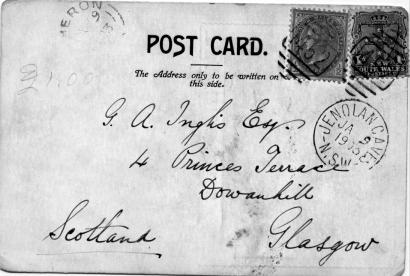 MERON
9
£1.00
POST CARD.
The Address only to be written on
this side.
SOUTH WALES
JENOLAN CAVES
JA 9
N.S.W
G. A. Inglis Esq.
4 Princes Terrace
Dowanhill
Scotland Glasgow